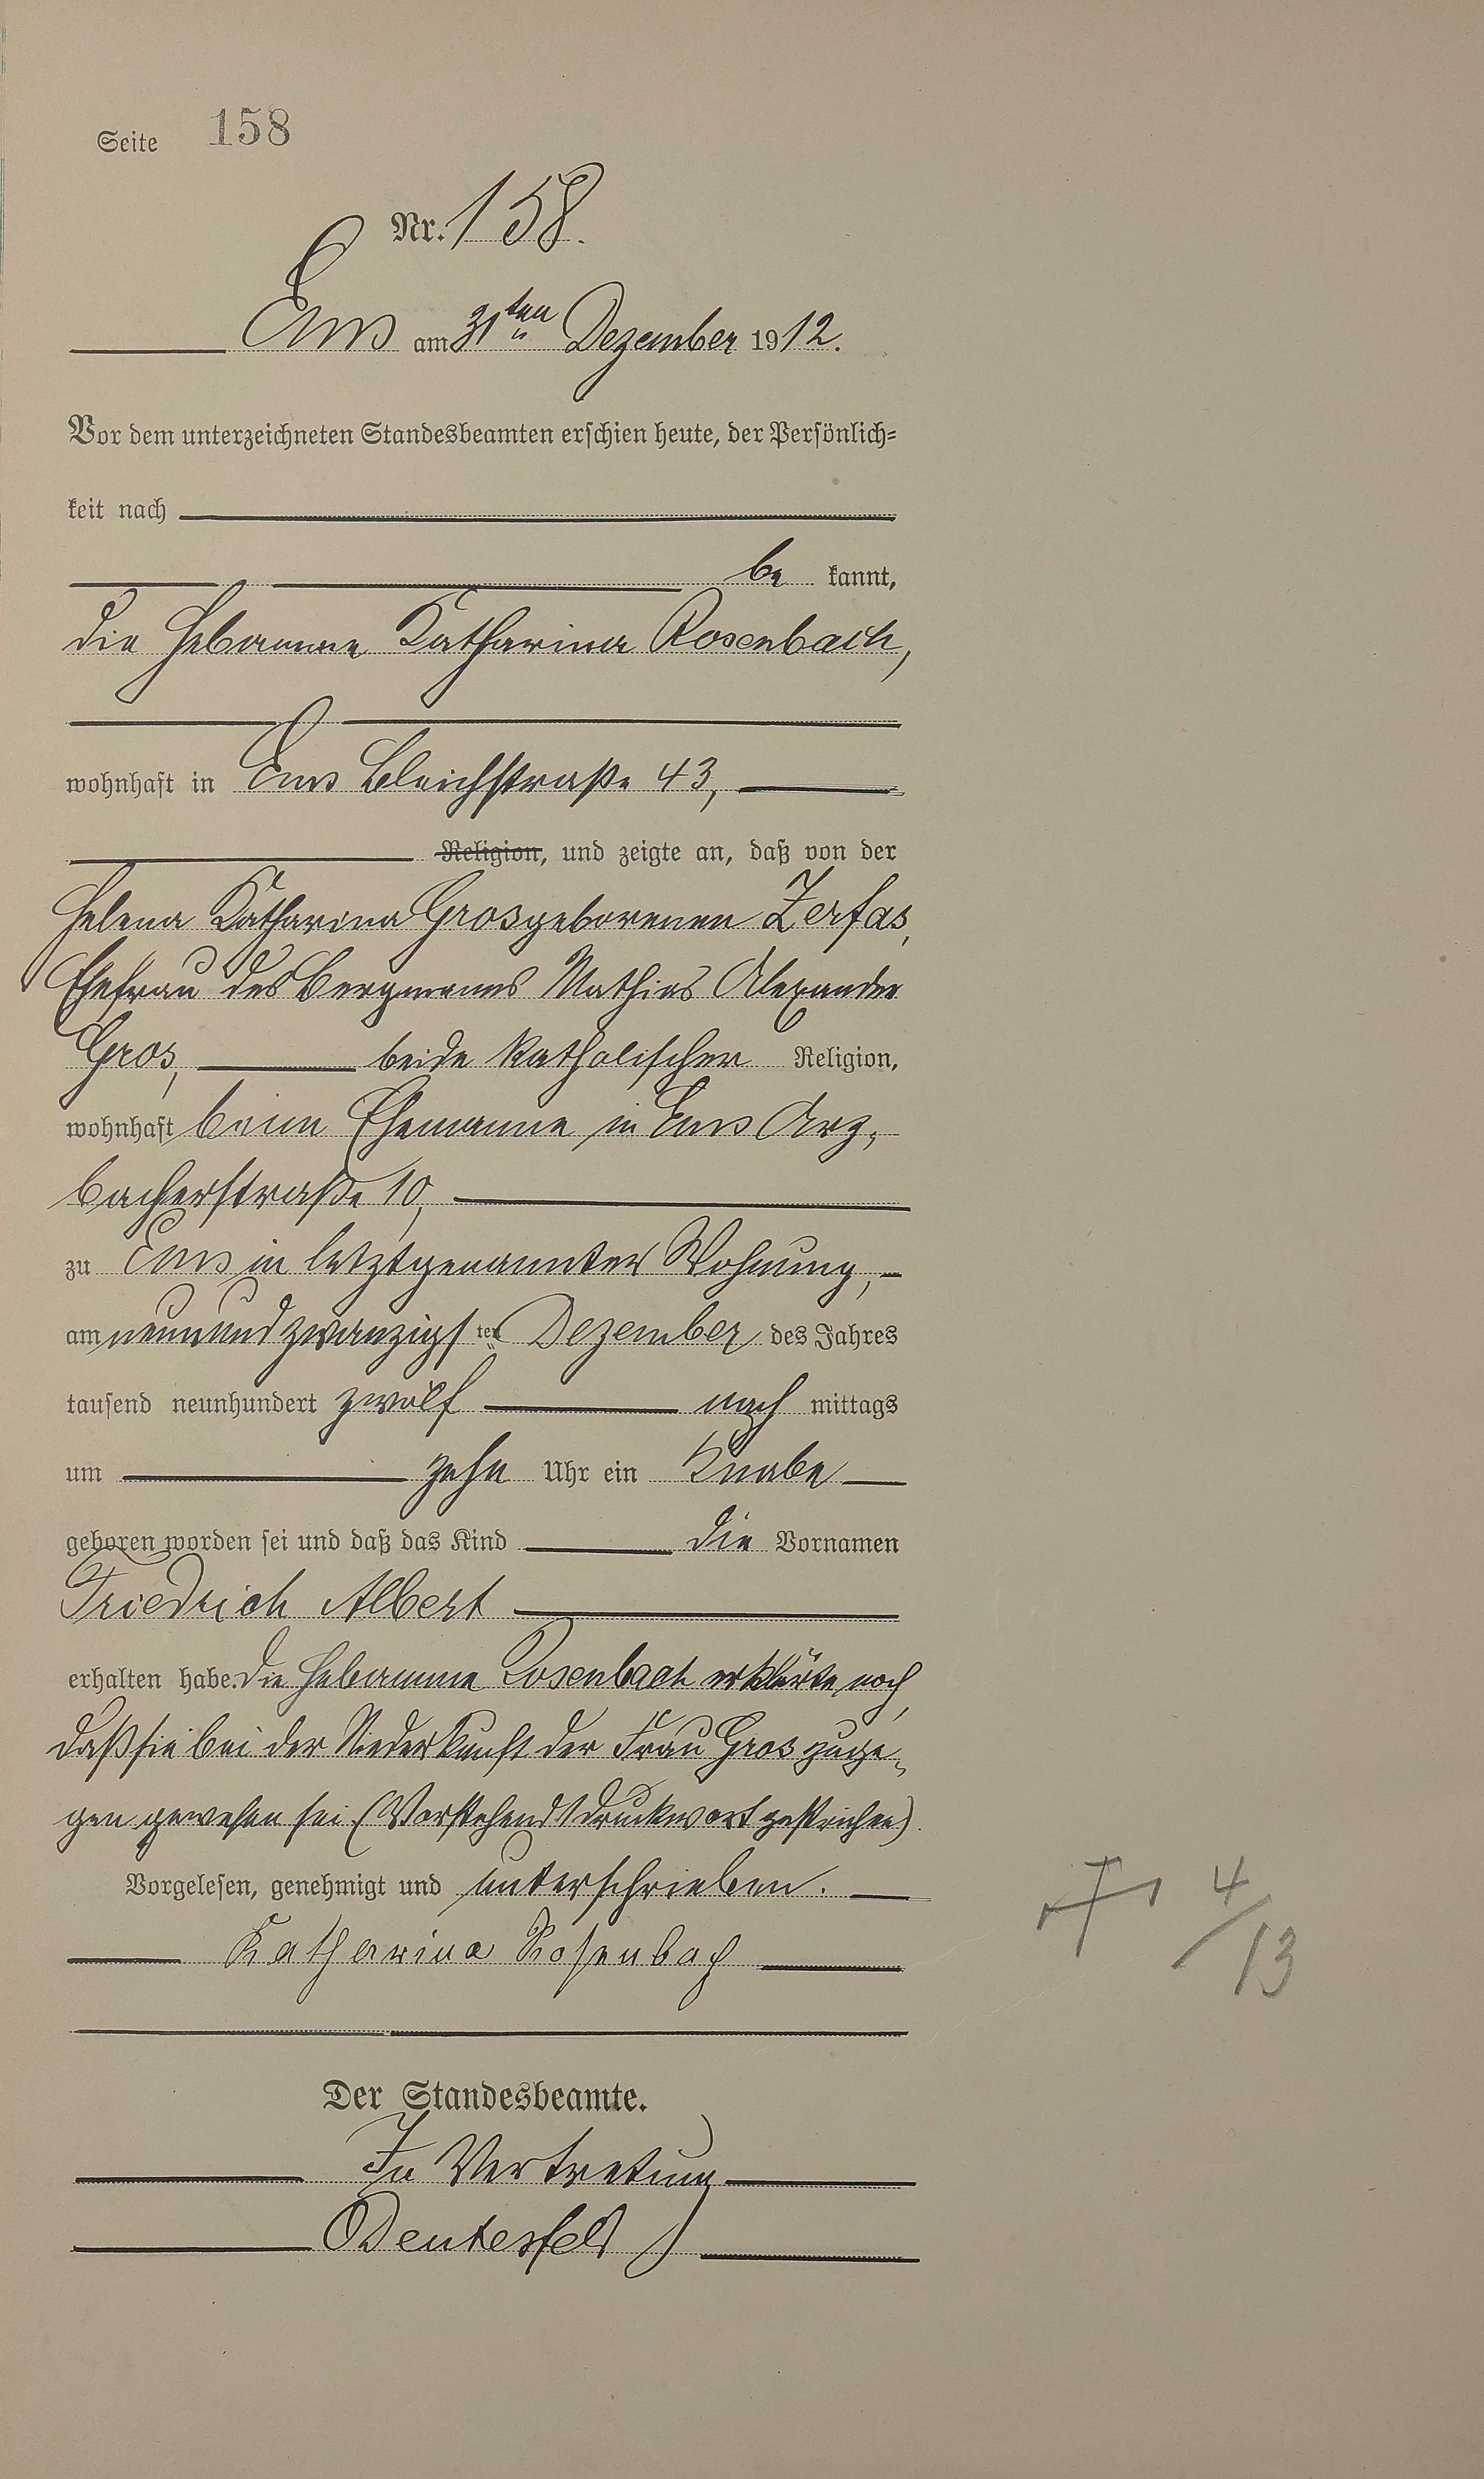 Seite 158
Nr. 158.
Ems am 31ten Dezember 1912.
Vor dem unterzeichneten Standesbeamten erschien heute, der Persönlich=
keit nach
be kannt,
die Hebamme Katharina Rosenbach,
wohnhaft in Ems Bleichstraße 43,
Religion, und zeigte an, daß von der
Helena Katharina Gros geborenen Zerfas,
Ehefrau des Bergmanns Mathias Alexander
Gros, beide katholischer Religion,
wohnhaft beim Ehemanne in Ems Arz-
bacherstraße 10,
zu Ems in letztgenannter Wohnung,
am neunundzwanzigsten Dezember des Jahres
tausend neunhundert zwölf nach mittags
um zehn Uhr ein Knabe
geboren worden sei und daß das Kind die Vornamen
Friedrich Albert
erhalten habe. Die Hebamme Rosenbach erklärte noch,
daß sie bei der Niederkunft der Frau Gros zuge-
gen gewesen sei (Vorstehend 1 Druckwort gestrichen).
Vorgelesen, genehmigt und unterschrieben.
Katharina Rosenbach
Der Standesbeamte.
In Vertretung
4/13